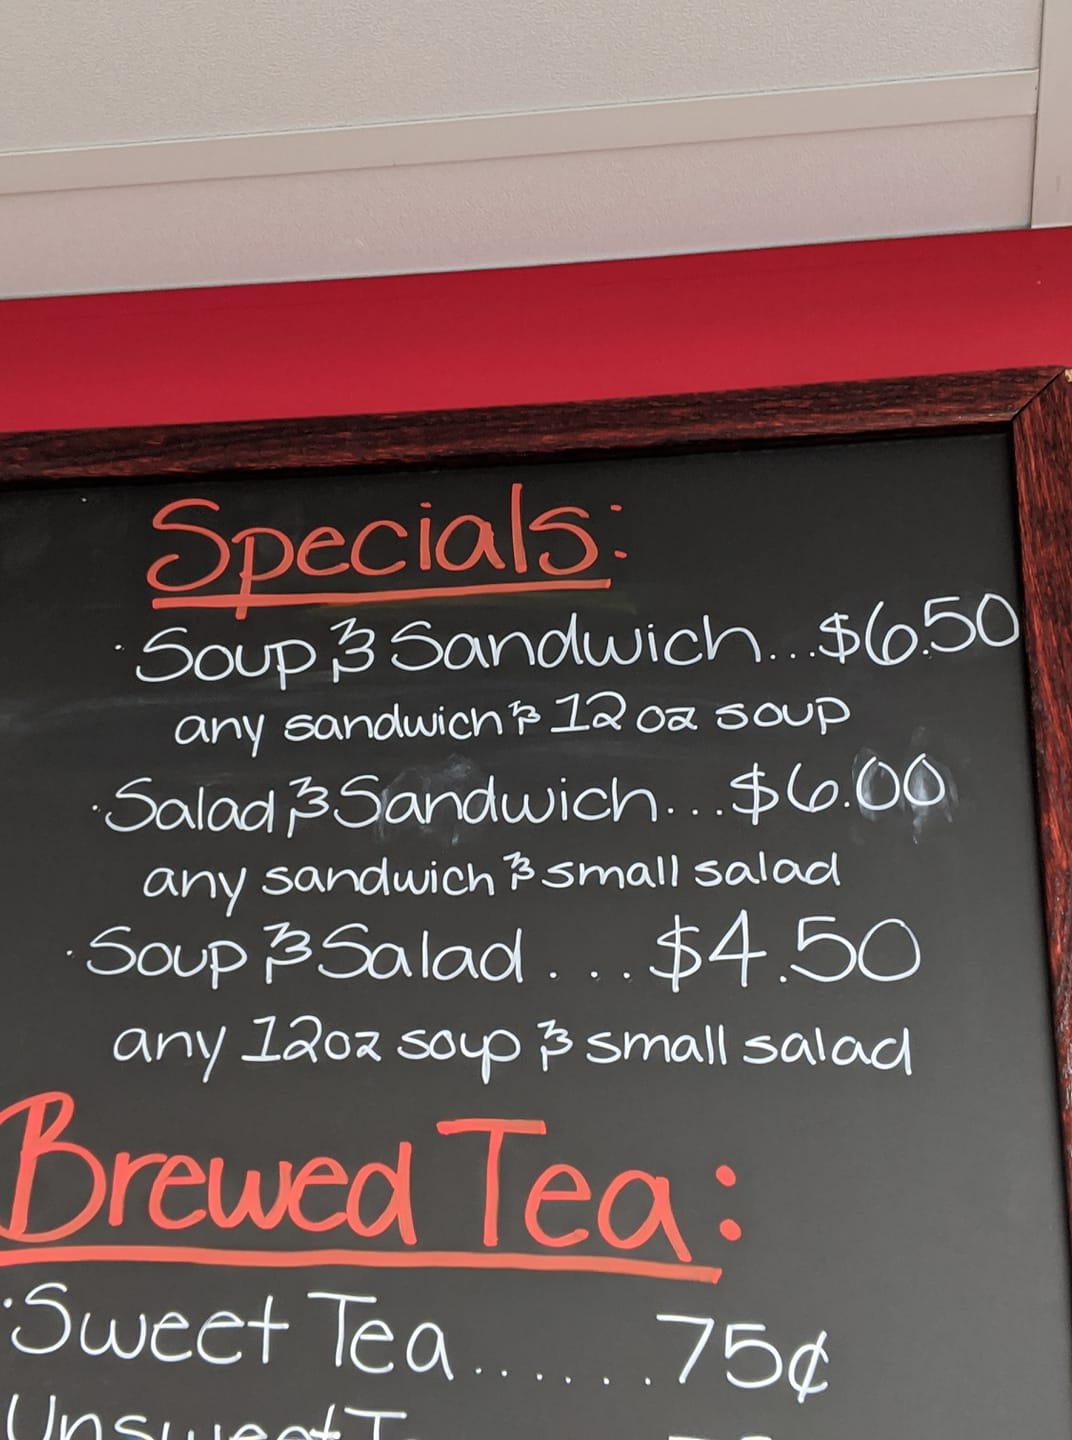 Specials:
· Soup & Sandwich...$6.50
any sandwich & 12 oz soup
· Salad & Sandwich...$6.00
any sandwich & small salad
· Soup & Salad...$4.50
any 12oz soup & small salad
Brewed Tea:
· Sweet Tea.......75¢
Unsweet